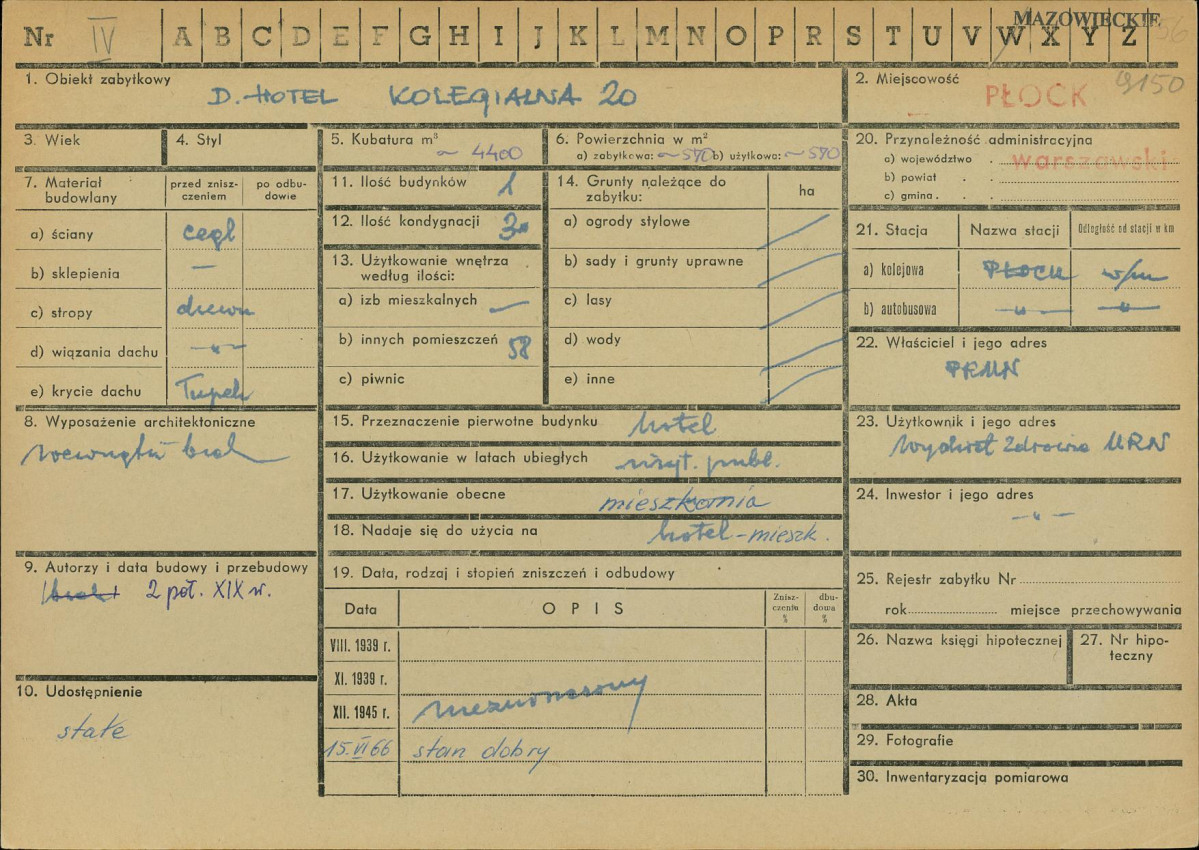 Nr IV A B C D E F G H I J K L M N O P R S T U V W X Y Z
MAZOWIECKIE 56
1. Obiekt zabytkowy
D. HOTEL KOLEGIALNA 20
2. Miejscowość
PŁOCK 9150
3. Wiek
4. Styl
5. Kubatura m³
~ 4400
6. Powierzchnia w m²
a) zabytkowa: ~570 b) użytkowa: ~570
7. Materiał budowlany
przed znisz-
czeniem
po odbu-
dowie
a) ściany cegł
b) sklepienia —
c) stropy drewn
d) wiązania dachu —"—
e) krycie dachu
8. Wyposażenie architektoniczne
wewnątrz brak
9. Autorzy i data budowy i przebudowy
brak 2 poł. XIX w.
10. Udostępnienie
stałe
11. Ilość budynków 1
12. Ilość kondygnacji 3
13. Użytkowanie wnętrza
według ilości:
a) izb mieszkalnych —
b) innych pomieszczeń 58
c) piwnic
14. Grunty należące do
zabytku:
ha
a) ogrody stylowe
b) sady i grunty uprawne
c) lasy
d) wody
e) inne
15. Przeznaczenie pierwotne budynku hotel
16. Użytkowanie w latach ubiegłych użyt. publ.
17. Użytkowanie obecne mieszkania
18. Nadaje się do użycia na hotel - mieszk.
19. Data, rodzaj i stopień zniszczeń i odbudowy
Data
OPIS
Znisz-
czeniu
%
dbu-
dowa
%
VIII. 1939 r.
XI. 1939 r.
XII. 1945 r.
15.VI 66 stan dobry
20. Przynależność administracyjna
a) województwo . warszawski
b) powiat . .
c) gmina . . .
21. Stacja
Nazwa stacji
Odległość od stacji w km
a) kolejowa PŁOCK w/m
b) autobusowa —"— —"—
22. Właściciel i jego adres
PRMN
23. Użytkownik i jego adres
Wydział Zdrowia MRN
24. Inwestor i jego adres
—"—
25. Rejestr zabytku Nr
rok miejsce przechowywania
26. Nazwa księgi hipotecznej
27. Nr hipo-
teczny
28. Akta
29. Fotografie
30. Inwentaryzacja pomiarowa